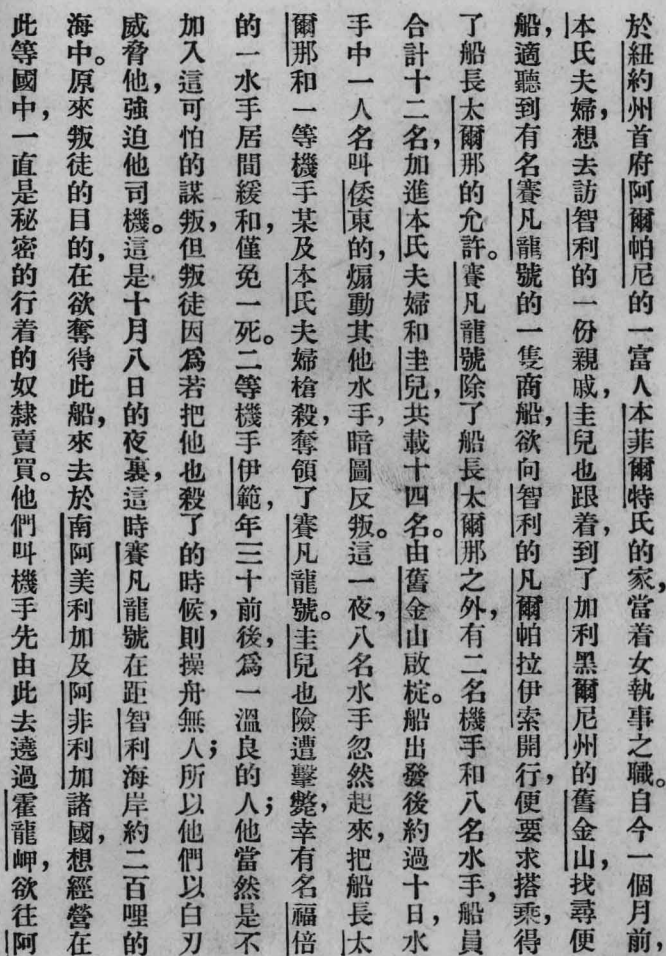 於紐約州首府阿爾帕尼的一富人本菲爾特氏的家，當着女執事之職。自今一個月前，
本氏夫婦，想去訪智利的一份親戚，圭兒也跟着，到了加利黑爾尼州的舊金山，找尋便
船，適聽到有名賽凡龍號的一隻商船，欲向智利的凡爾帕拉伊索開行，便要求搭乘，得
了船長太爾那的允許。賽凡龍號除了船長太爾那之外，有二名機手和八名水手，船員
合計十二名，加進本氏夫婦和圭兒，共載十四名。由舊金山啟椗。船出發後約過十日，水
手中一人名叫倭東的，煽動其他水手，暗圖反叛。這一夜，八名水手忽然起來，把船長太
爾那和一等機手某及本氏夫婦槍殺，奪領了賽凡龍號。圭兒也險遭擊斃，幸有名福倍
的一水手居間緩和，僅免一死。二等機手伊範，年三十前後，爲一溫良的人；他當然是不
加入這可怕的謀叛，但叛徒因爲若把他也殺了的時候，則操舟無人；所以他們以白刃
威脅他，強迫他司機。這是十月八日的夜裏，這時賽凡龍號在距智利海岸約二百哩的
海中。原來叛徒的目的，在欲奪得此船，來去於南阿美利加及阿非利加諸國，想經營在
此等國中，一直是秘密的行着的奴隸賣買。他們叫機手先由此去遶過霍龍岬，欲往阿